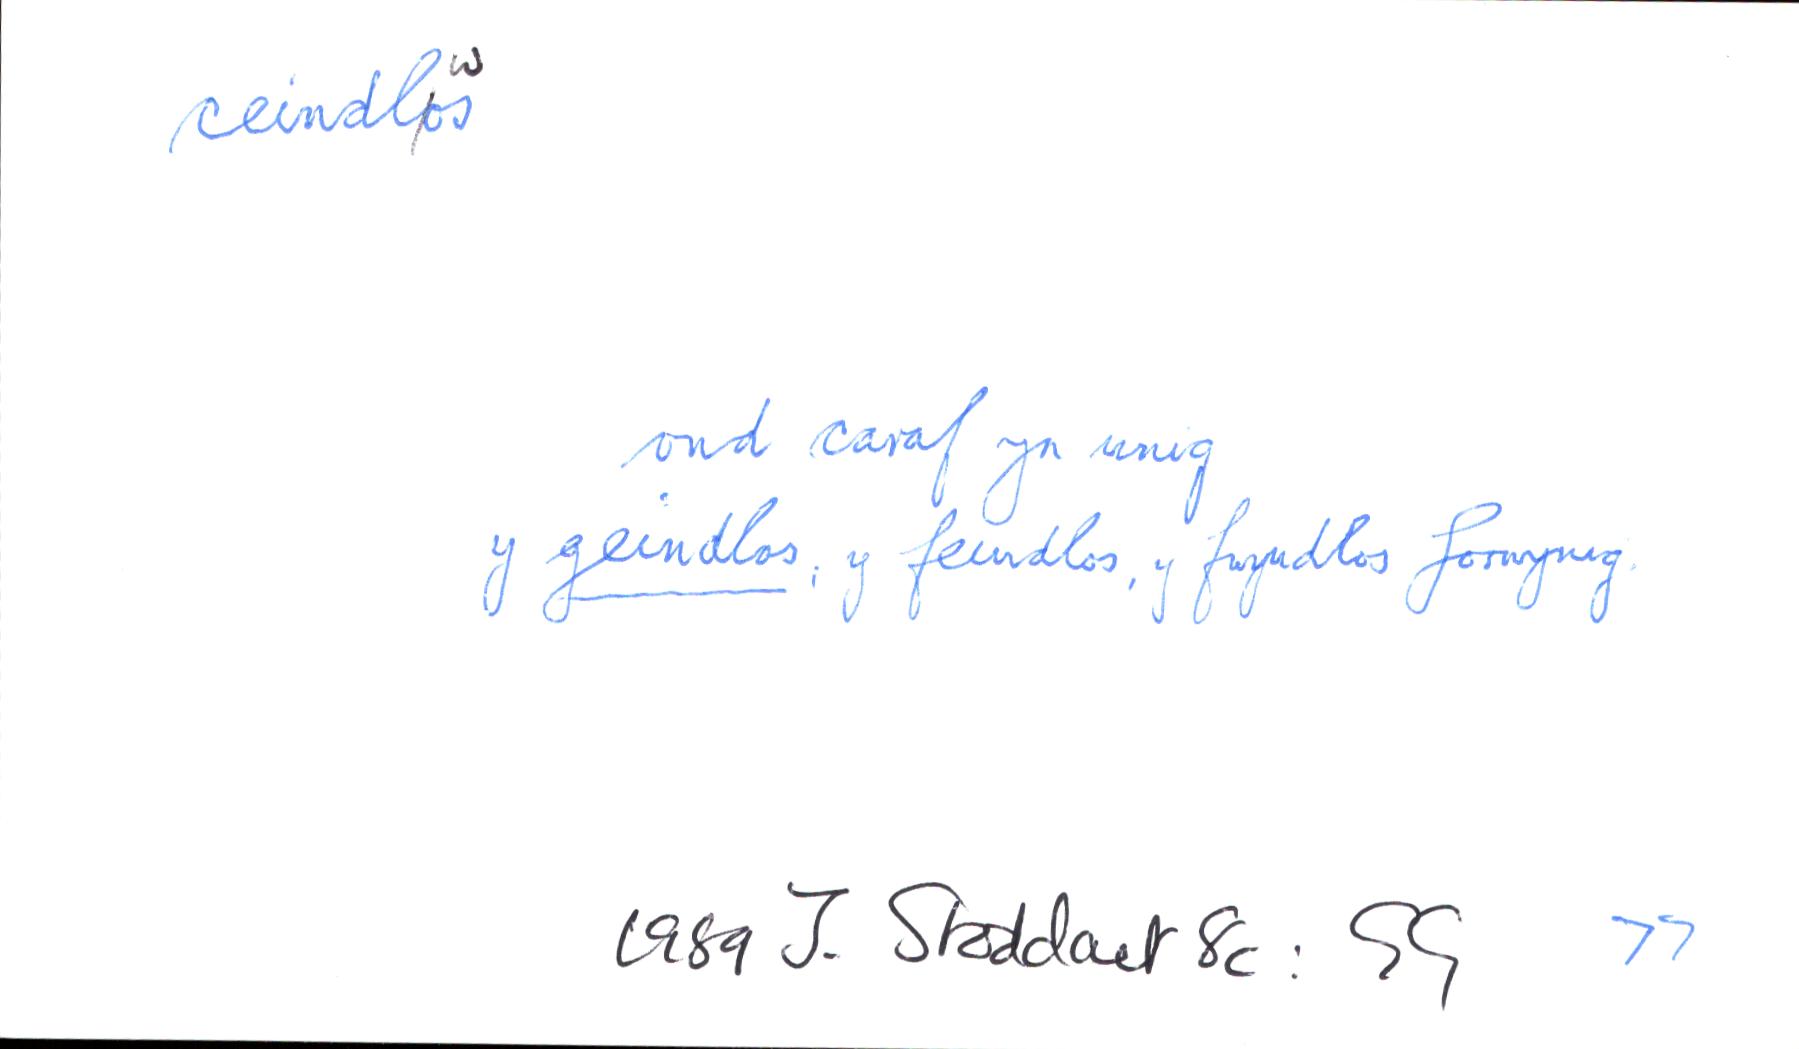 ceindlos
w
ond caraf yn unig
y geindlos, y feindlos, y fwyndlos forwynig.
1989 J. Stoddart &c: SG 77